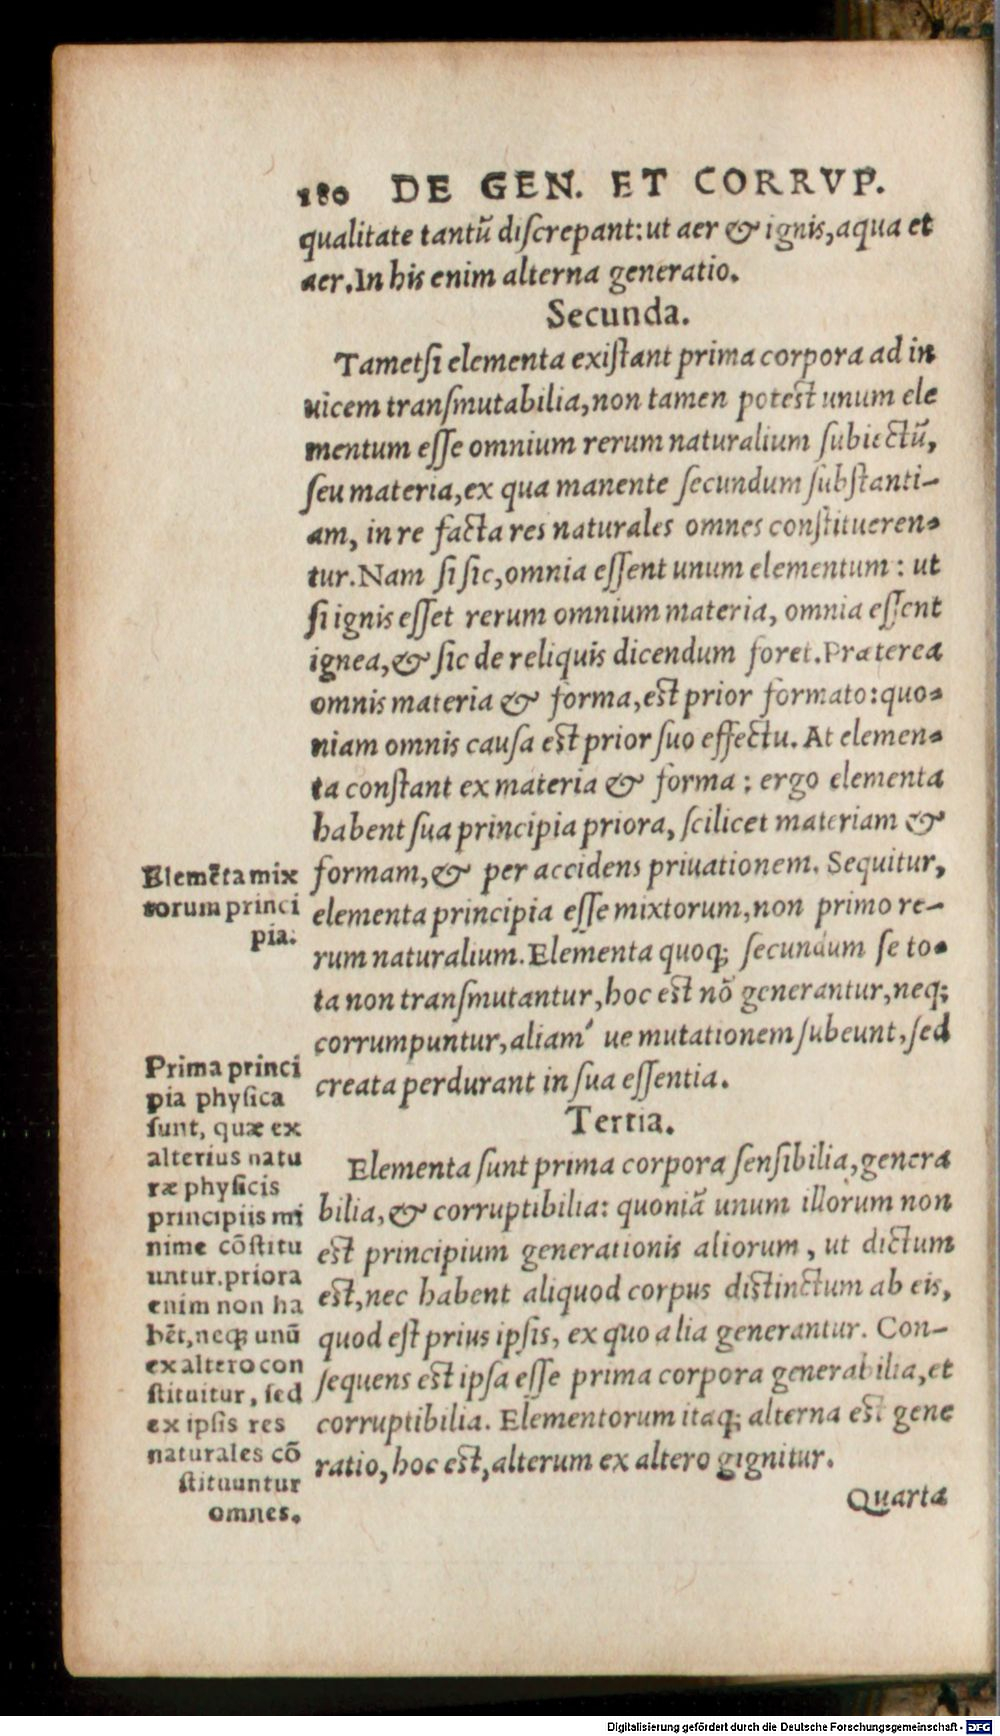 180 DE GEN. ET CORRVP.
qualitate tantũ diſcrepant: ut aer & ignis, aqua et
aer. In his enim alterna generatio.
Secunda.
Tametſi elementa exiſtant prima corpora ad in
uicem tranſmutabilia, non tamen poteſt unum ele
mentum eſſe omnium rerum naturalium ſubiectũ,
ſeu materia, ex qua manente ſecundum ſubſtanti-
am, in re facta res naturales omnes conſtitueren-
tur. Nam ſi ſic, omnia eſſent unum elementum: ut
ſi ignis eſſet rerum omnium materia, omnia eſſent
ignea, & ſic de reliquis dicendum foret. Præterea
omnis materia & forma, eſt prior formato: quo-
niam omnis cauſa eſt prior ſuo effectu. At elemen-
ta conſtant ex materia & forma: ergo elementa
habent ſua principia priora, ſcilicet materiam &
formam, & per accidens priuationem. Sequitur,
elementa principia eſſe mixtorum, non primo re-
rum naturalium. Elementa quoq; ſecundum ſe to-
ta non tranſmutantur, hoc eſt nõ generantur, neq;
corrumpuntur, aliaḿ ue mutationem ſubeunt, ſed
creata perdurant in ſua eſſentia.
Elemẽta mix
torum princi
pia.
Prima princi
pia phyſica
ſunt, quæ ex
alterius natu
ræ phyſicis
principiis mi
nime cõſtitu
untur. priora
enim non ha
bẽt, neq; unũ
ex altero con
ſtituitur, ſed
ex ipſis res
naturales cõ
ſtituuntur
omnes.
Tertia.
Elementa ſunt prima corpora ſenſibilia, genera
bilia, & corruptibilia: quoniã unum illorum non
eſt principium generationis aliorum, ut dictum
eſt, nec habent aliquod corpus diſtinctum ab eis,
quod eſt prius ipſis, ex quo alia generantur. Con-
ſequens eſt ipſa eſſe prima corpora generabilia, et
corruptibilia. Elementorum itaq; alterna eſt gene
ratio, hoc eſt, alterum ex altero gignitur.
Quarta
Digitalisierung gefördert durch die Deutsche Forschungsgemeinschaft - DFG